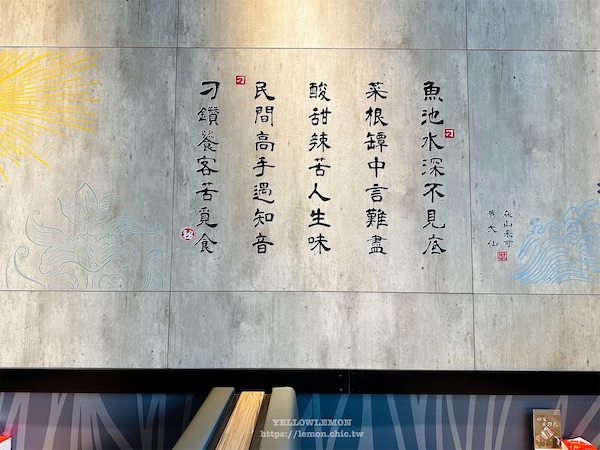 魚池水深不見底
菜根罈中言難盡
酸甜辣苦人生味
民間高手遇知音
刁鑽饕客苦覓食
YELLOWLEMON
https://lemon.chic.tw